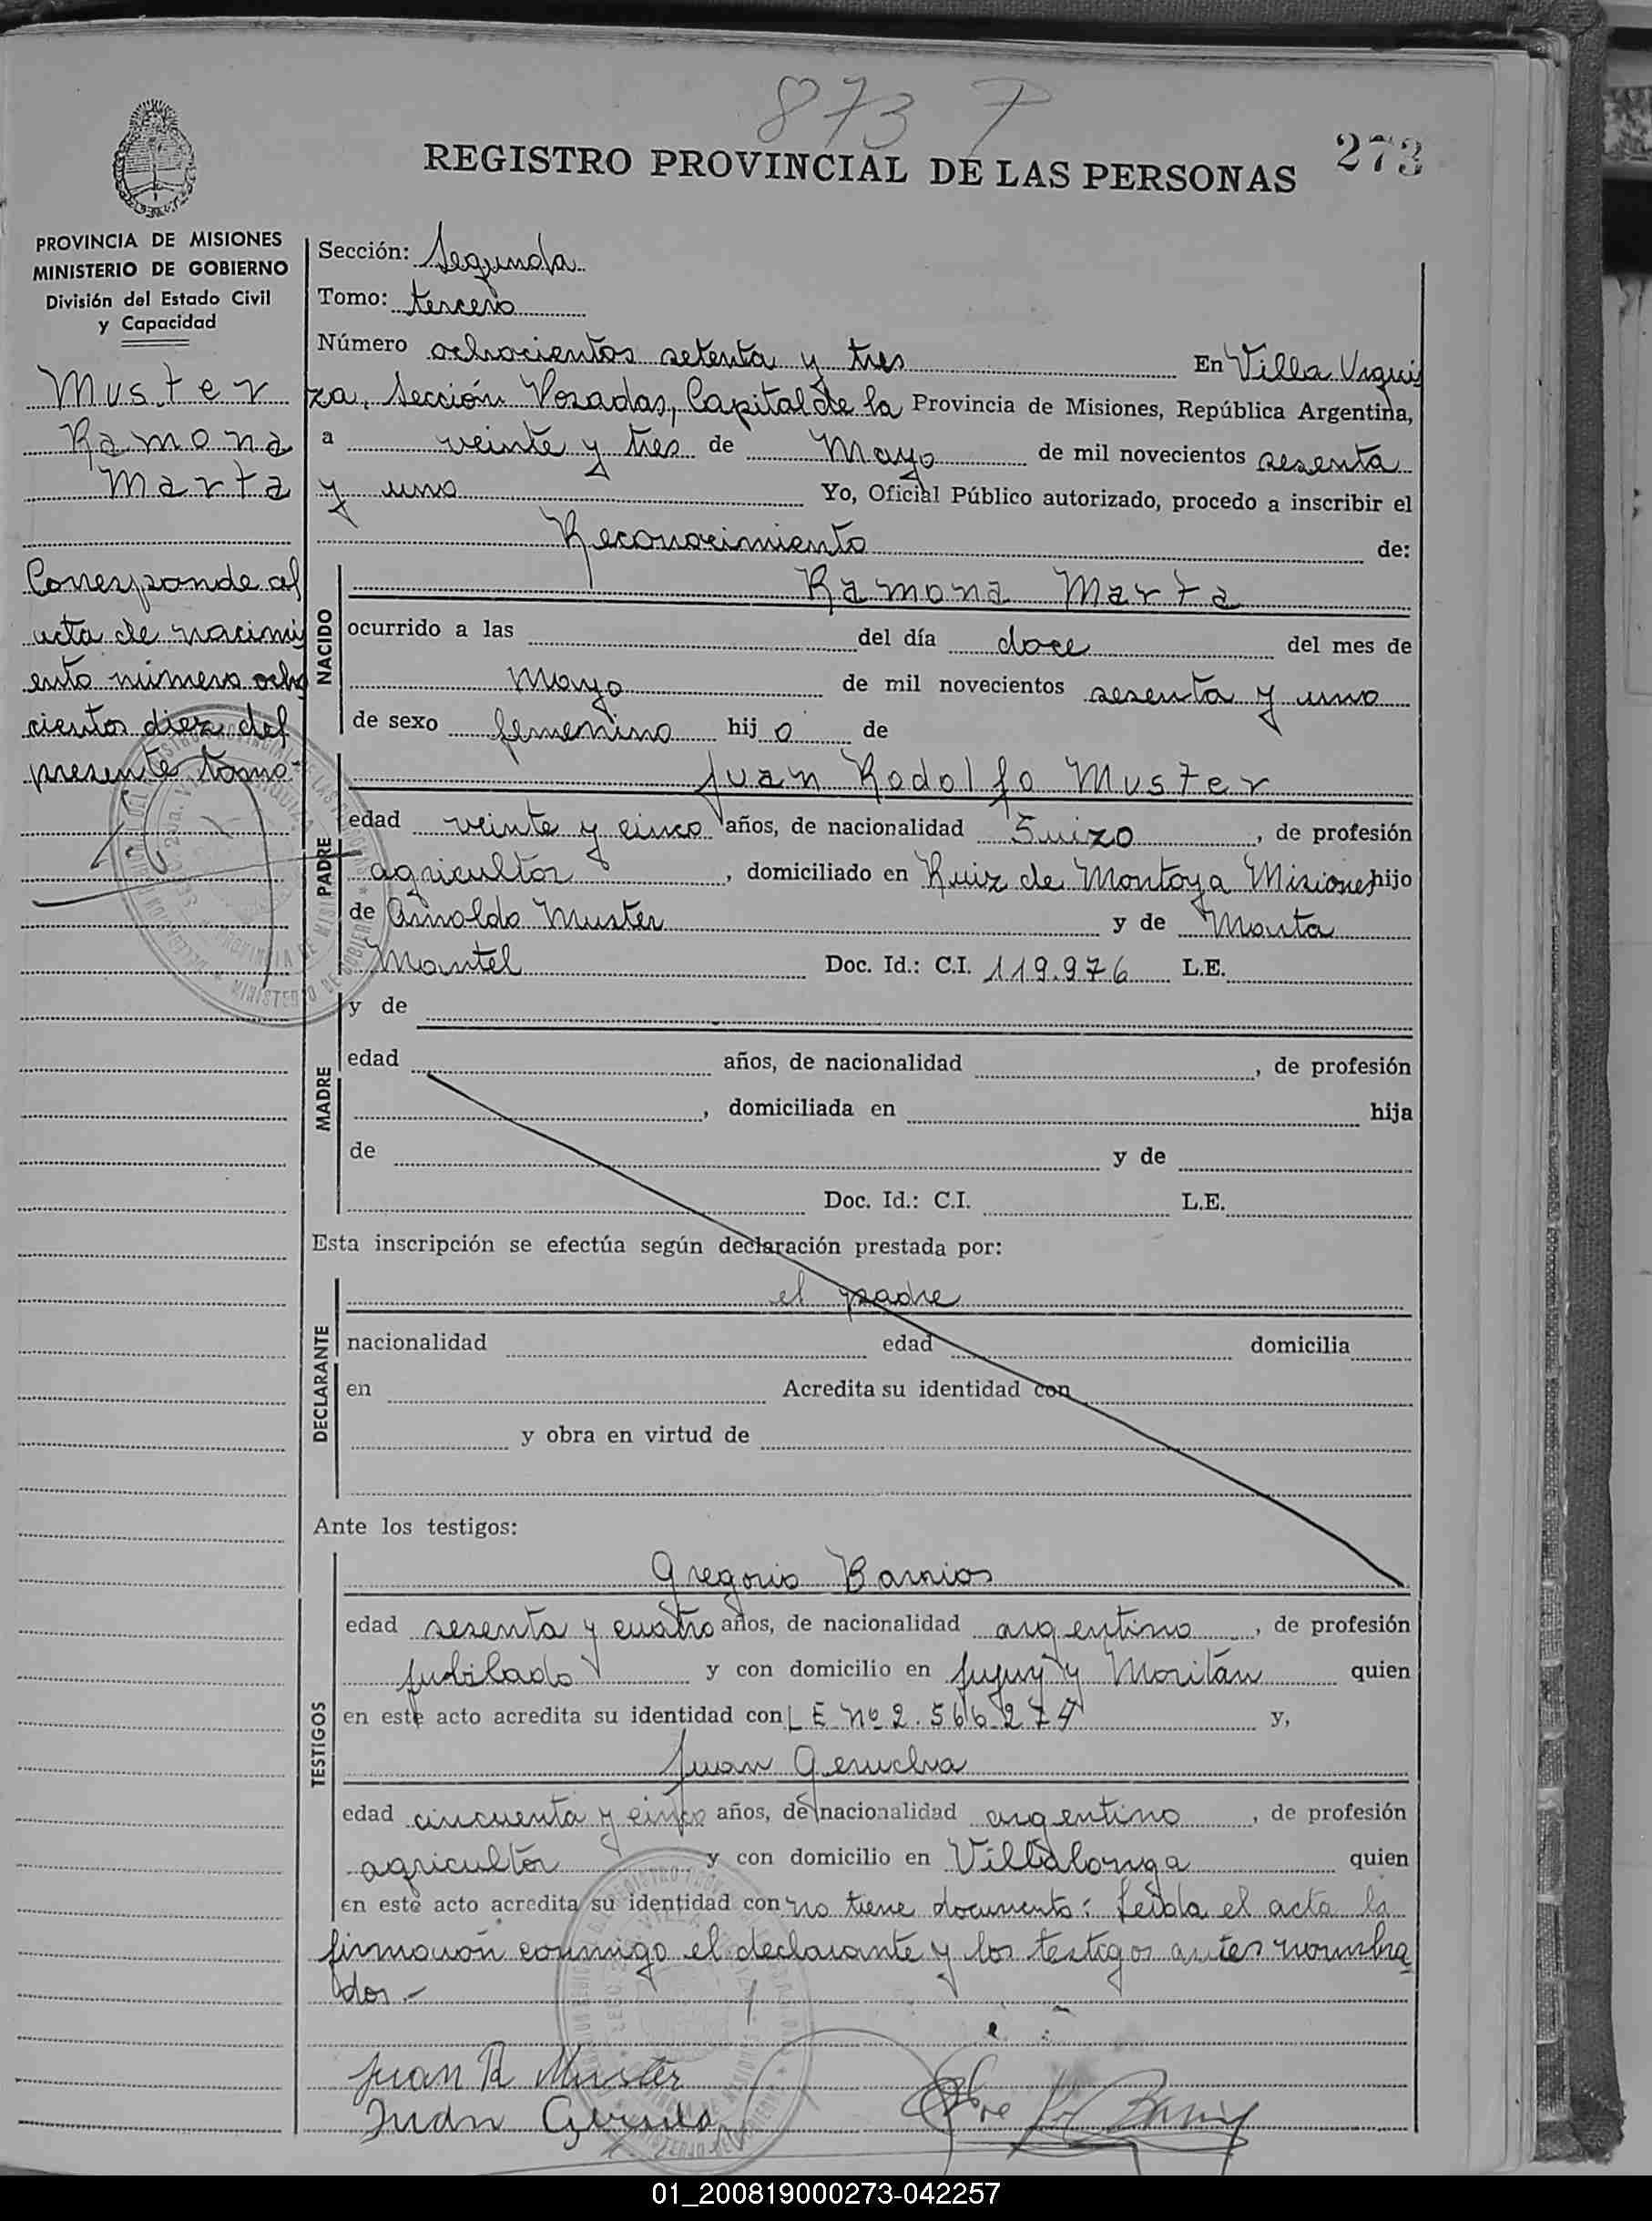 873 P
REGISTRO PROVINCIAL DE LAS PERSONAS 273
PROVINCIA DE MISIONES
MINISTERIO DE GOBIERNO
División del Estado Civil
y Capacidad
Muster
Ramona
Marta
Corresponde al
acta de nacimi
ento número ocho
cientos diez del
presente tomo-
Sección: Segunda
Tomo: tercero
Número ochocientos setenta y tres En Villa Urqui
za, Sección Posadas, Capital de la Provincia de Misiones, República Argentina,
a veinte y tres de Mayo de mil novecientos sesenta
y uno Yo, Oficial Público autorizado, procedo a inscribir el
Reconocimiento de:
NACIDO
Ramona Marta
ocurrido a las del día doce del mes de
mayo de mil novecientos sesenta y uno
de sexo femenino hij a de
PADRE
Juan Rodolfo Muster
edad veinte y cinco años, de nacionalidad Suizo, de profesión
agricultor, domiciliado en Ruiz de Montoya Misiones hijo
de Arnoldo Muster y de Marta
Mantel Doc. Id.: C.I. 119.976 L.E.
MADRE
y de
edad años, de nacionalidad , de profesión
, domiciliada en hija
de y de
Doc. Id.: C.I. L.E.
Esta inscripción se efectúa según declaración prestada por:
DECLARANTE
el padre
nacionalidad edad domicilia
en Acredita su identidad con
y obra en virtud de
Ante los testigos:
TESTIGOS
Gregorio Barrios
edad sesenta y cuatro años, de nacionalidad argentino, de profesión
jubilado y con domicilio en Jujuy y Moritán quien
en este acto acredita su identidad con L E Nº 2.566.274 y,
Juan Gerucha
edad cincuenta y cinco años, de nacionalidad argentino, de profesión
agricultor y con domicilio en Villalonga quien
en este acto acredita su identidad con no tiene documento: Leida el acta la
firmaron conmigo el declarante y los testigos antes nombra
dos.-
Juan R Muster
Juan
01_200819000273-042257